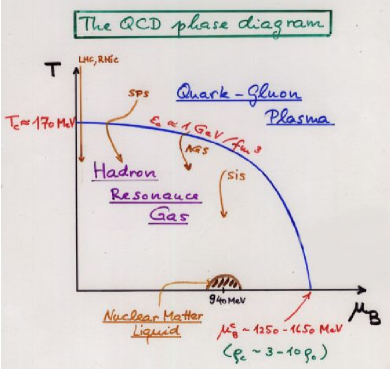 The QCD phase diagram
T
LHC, RHIC
SPS
Quark-Gluon
Plasma
Tc ≈ 170 MeV
εc ≈ 1 GeV/fm3
AGS
Hadron
Resonance
Gas
SIS
Nuclear Matter
Liquid
940 MeV
μB
μBc ~ 1250 - 1650 MeV
(ρc ~ 3-10ρ0)